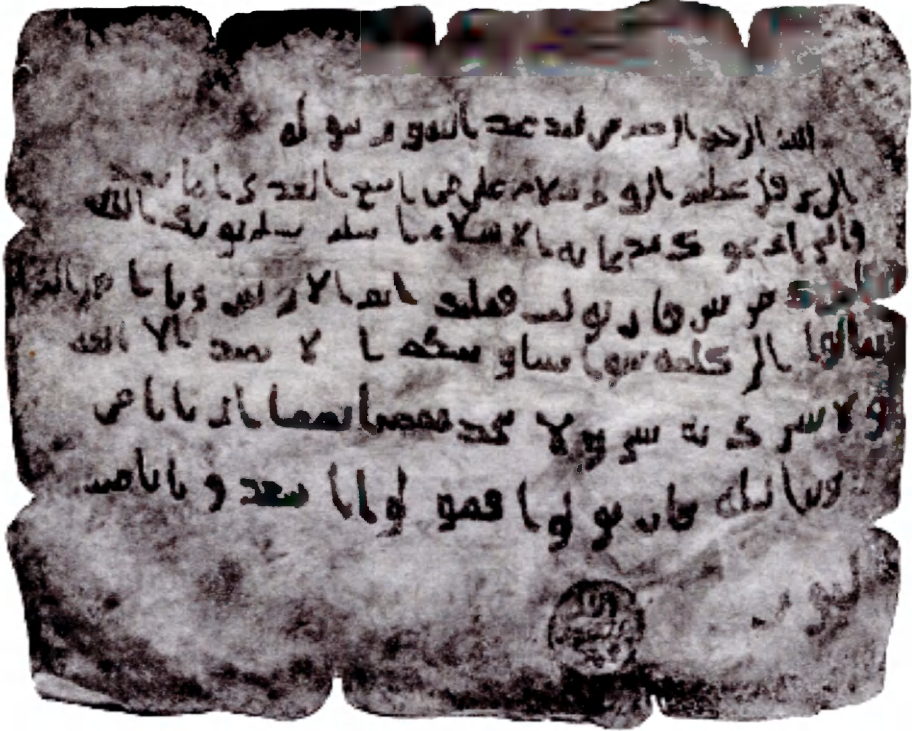 الله الرحمن الرحيم من محمد عبد الله ورسوله
الى هرقل عظيم الروم سلام على من اتبع الهدى اما بعد
فانى ادعوك بدعاية الاسلام اسلم تسلم يوتك الله
مرتين فان توليت فعليك اثم
تعالوا الى كلمة سوا بيننا وبينكم ا لا نعبد الا الله
ولا نشرك به شيا ولا يتخذ بعضنا بعضا اربابا من
دون الله فان تولوا فقولوا اشهدوا بانا
الله
رسول
محمد